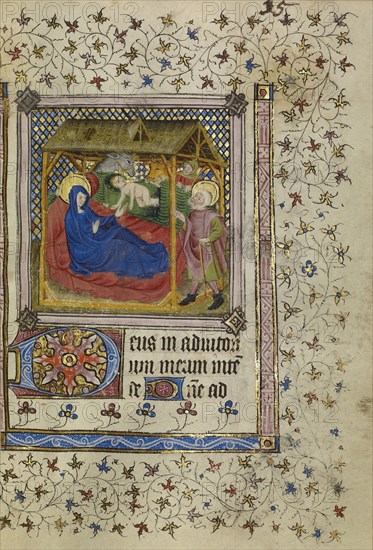 35
Deus in adiutori
um meum inte
de D͞ne ad